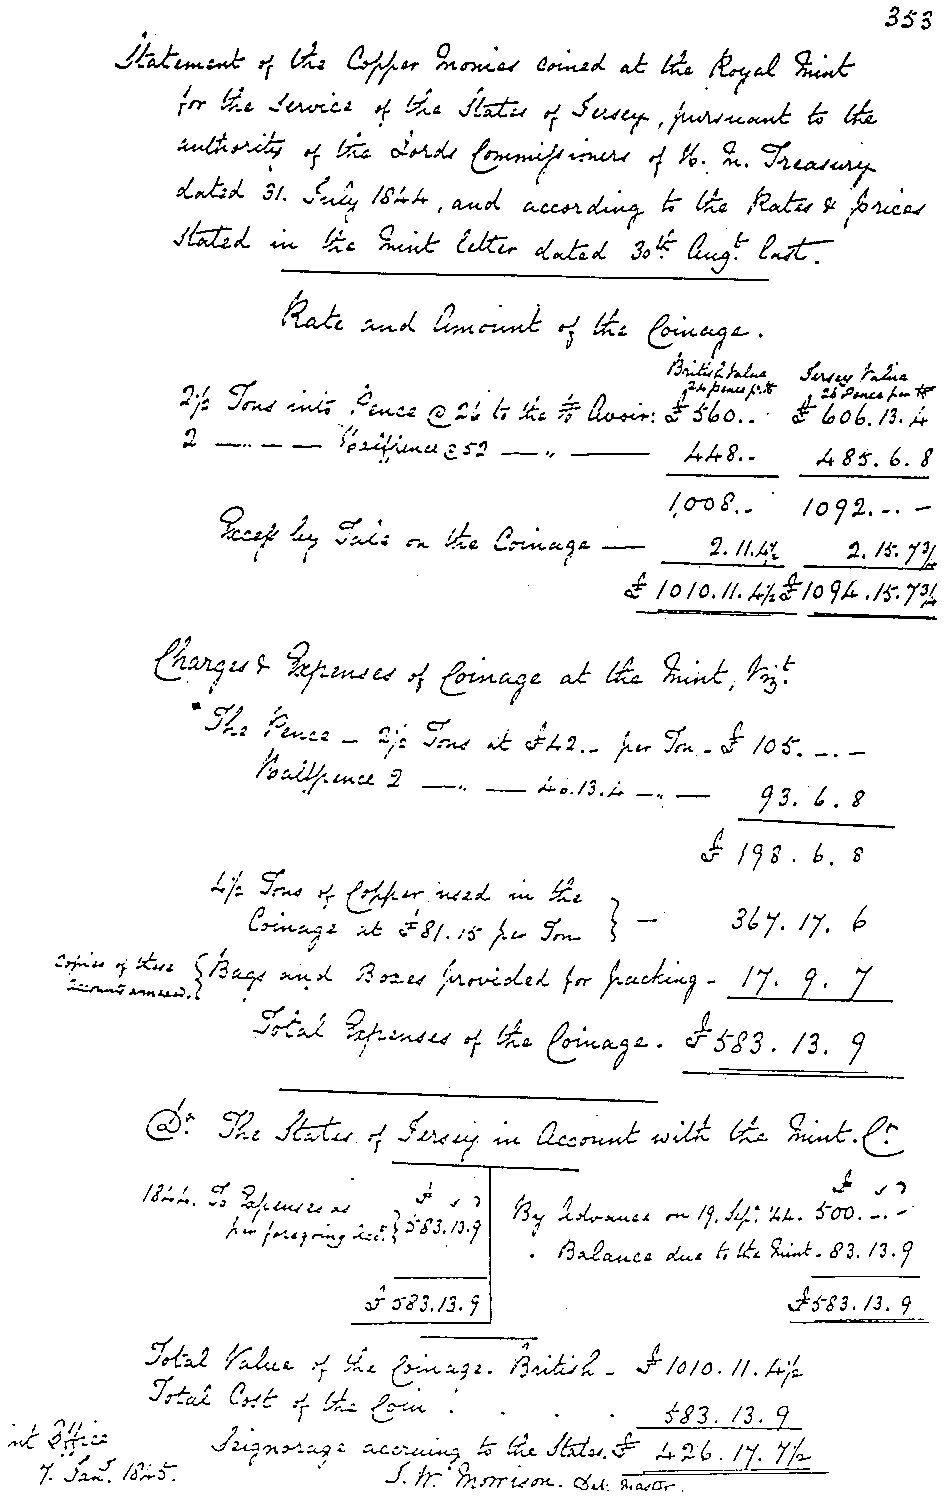 353
Statement of the Copper Monies coined at the Royal Mint
for the Service of the States of Jersey, pursuant to the
authority of the Lords Commissioners of H. M. Treasury
dated 31. July 1844, and according to the Rates & prices
stated in the Mint Letter dated 30th Augt. last.
Rate and Amount of the Coinage.
British Value Jersey Value
24 pence pr. lb 26 Pence per lb
2½ Tons into Pence @ 26 to the lb Avoir: £ 560.. £ 606.13.4
2 — .. — — Halfpence @ 52 — „ — 448.- 485.6.8
1,008.- 1092.-.-
Excess by Tale on the Coinage — 2.11.4½ 2.15.7¾
£ 1010.11.4½ £ 1094.15.7¾
Charges & Expenses of Coinage at the Mint, Vizt.
The Pence — 2½ Tons at £42.- per Ton - £ 105.-.-
Halfpence 2 — „ — 40.13.4 — „ — 93.6.8
£ 198.6.8
4½ Tons of Copper used in the
Coinage at £81.15 per Ton } — 367.17.6
Copies of these
accounts annexed. { Bags and Boxes provided for packing - 17.9.7
Total Expenses of the Coinage. £ 583.13.9
Dr. The States of Jersey in Account with the Mint. Cr
1844. To Expenses as
per foregoing acct. } 583.13.9
£ 583.13.9
By Advance on 19. Sepr. 44. 500.-.-
. Balance due to the Mint - 83.13.9
£583.13.9
Total Value of the Coinage. British - £ 1010.11.4½
Total Cost of the Coin . . . . 583.13.9
Seignorage accruing to the States. £ 426.17.7½
int Office
7. Jany. 1845.
J. W. Morrison. Dep. Master.